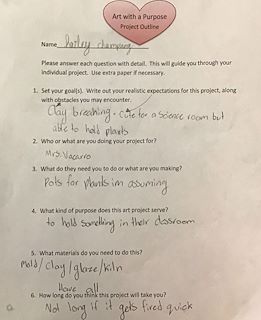 Art with a Purpose
Project Outline
Name hailey champany
Please answer each question with detail. This will guide you through your
individual project. Use extra paper if necessary.
1. Set your goal(s). Write out your realistic expectations for this project, along
with obstacles you may encounter.
Clay breaking - cute for a science room but
able to hold plants
2. Who or what are you doing your project for?
Mrs. Vacarro
3. What do they need you to do or what are you making?
Pots for plants im assuming
4. What kind of purpose does this art project serve?
to hold something in their classroom
5. What materials do you need to do this?
Mold/clay/glaze/kiln
Have all
6. How long do you think this project will take you?
Not long if it gets fired quick